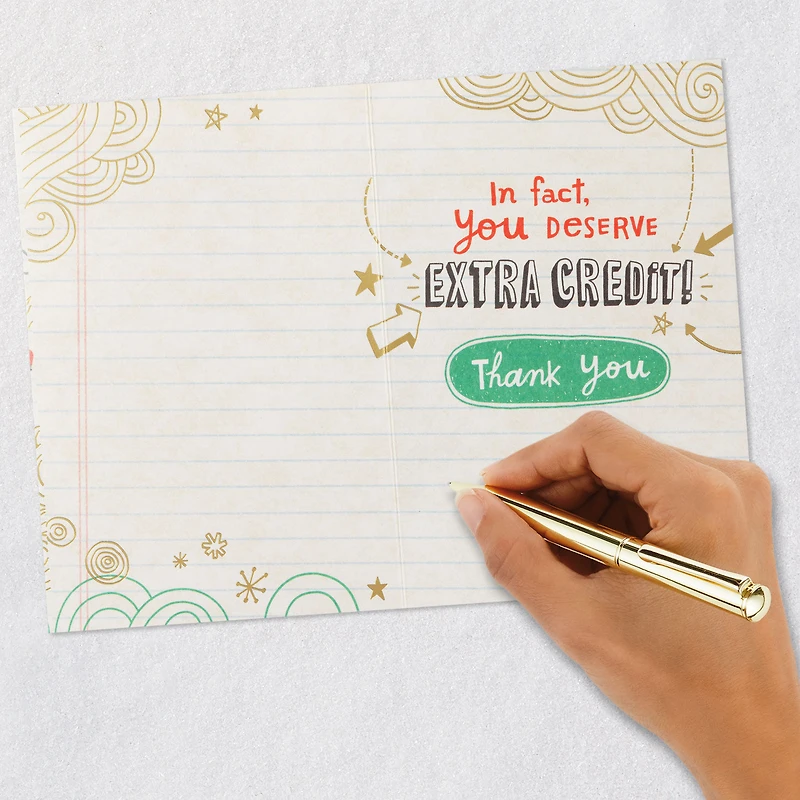 In fact,
you DESERVE
EXTRA CREDiT!
Thank You